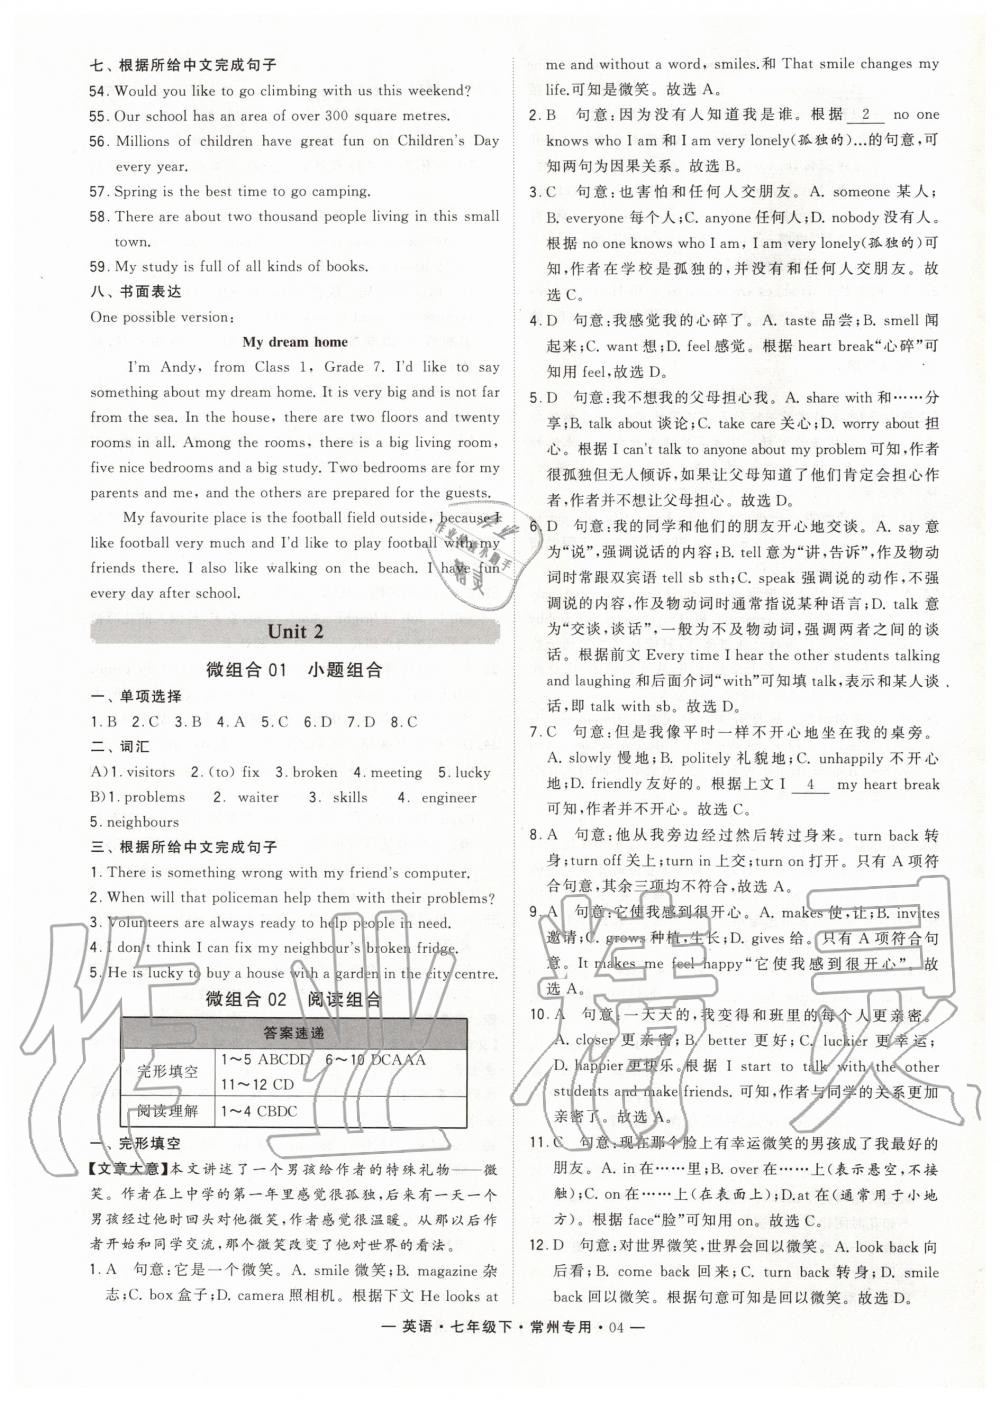 七、根据所给中文完成句子
54. Would you like to go climbing with us this weekend?
55. Our school has an area of over 300 square metres.
56. Millions of children have great fun on Children's Day
every year.
57. Spring is the best time to go camping.
58. There are about two thousand people living in this small
town.
59. My study is full of all kinds of books.
八、书面表达
One possible version:
My dream home
I'm Andy, from Class 1, Grade 7. I'd like to say
something about my dream home. It is very big and is not far
from the sea. In the house, there are two floors and twenty
rooms in all. Among the rooms, there is a big living room,
five nice bedrooms and a big study. Two bedrooms are for my
parents and me, and the others are prepared for the guests.
My favourite place is the football field outside, because I
like football very much and I'd like to play football with my
friends there. I also like walking on the beach. I have fun
every day after school.
Unit 2
微组合 01 小题组合
一、单项选择
1. B 2. C 3. B 4. A 5. C 6. D 7. D 8. C
二、词汇
A)1. visitors 2. (to) fix 3. broken 4. meeting 5. lucky
B)1. problems 2. waiter 3. skills 4. engineer
5. neighbours
三、根据所给中文完成句子
1. There is something wrong with my friend's computer.
2. When will that policeman help them with their problems?
3. Volunteers are always ready to help people in need.
4. I don't think I can fix my neighbour's broken fridge.
5. He is lucky to buy a house with a garden in the city centre.
微组合 02 阅读组合
答案速递
完形填空 1～5 ABCDD 6～10 DCAAA
11～12 CD
阅读理解 1～4 CBDC
一、完形填空
【文章大意】本文讲述了一个男孩给作者的特殊礼物——微
笑。作者在上中学的第一年里感觉很孤独,后来有一天一个
男孩经过他时回头对他微笑,作者感觉很温暖。从那以后作
者开始和同学交流,那个微笑改变了他对世界的看法。
1. A 句意:它是一个微笑。A. smile 微笑;B. magazine 杂
志;C. box 盒子;D. camera 照相机。根据下文 He looks at
me and without a word, smiles.和 That smile changes my
life.可知是微笑。故选 A。
2. B 句意:因为没有人知道我是谁。根据 2 no one
knows who I am 和 I am very lonely(孤独的)…的句意,可
知两句为因果关系。故选 B。
3. C 句意:也害怕和任何人交朋友。A. someone 某人;
B. everyone 每个人;C. anyone 任何人;D. nobody 没有人。
根据 no one knows who I am, I am very lonely(孤独的)可
知,作者在学校是孤独的,并没有和任何人交朋友。故
选 C。
4. D 句意:我感觉我的心碎了。A. taste 品尝;B. smell 闻
起来;C. want 想;D. feel 感觉。根据 heart break“心碎”可
知用 feel,故选 D。
5. D 句意:我不想我的父母担心我。A. share with 和……分
享;B. talk about 谈论;C. take care 关心;D. worry about 担
心。根据 I can't talk to anyone about my problem 可知,作者
很孤独但无人倾诉,如果让父母知道了他们肯定会担心作
者,作者并不想让父母担心。故选 D。
6. D 句意:我的同学和他们的朋友开心地交谈。A. say 意
为“说”,强调说话的内容;B. tell 意为“讲,告诉”,作及物动
词时常跟双宾语 tell sb sth;C. speak 强调说的动作,不强
调说的内容,作及物动词时通常指说某种语言;D. talk 意
为“交谈,谈话”,一般为不及物动词,强调两者之间的谈
话。根据前文 Every time I hear the other students talking
and laughing 和后面介词“with”可知填 talk,表示和某人谈
话,即 talk with sb。故选 D。
7. C 句意:但是我像平时一样不开心地坐在我的桌旁。
A. slowly 慢地;B. politely 礼貌地;C. unhappily 不开心
地;D. friendly 友好的。根据上文 I 4 my heart break
可知,作者并不开心。故选 C。
8. A 句意:他从我旁边经过然后转过身来。turn back 转
身;turn off 关上;turn in 上交;turn on 打开。只有 A 项符
合句意,其余三项均不符合,故选 A。
9. A 句意:它使我感到很开心。A. makes 使,让;B. invites
邀请;C. grows 种植,生长;D. gives 给。只有 A 项符合句
意。It makes me feel happy“它使我感到很开心”。故
选 A。
10. A 句意:一天天的,我变得和班里的每个人更亲密。
A. closer 更亲密;B. better 更好;C. luckier 更幸运;
D. happier 更快乐。根据 I start to talk with the other
students and make friends. 可知,作者与同学的关系更加
亲密了。故选 A。
11. C 句意:现在那个脸上有幸运微笑的男孩成了我最好的
朋友。A. in 在……里;B. over 在……上(表示悬空,不接
触);C. on 在……上(在表面上);D.at 在(通常用于小地
方)。根据 face“脸”可知用 on。故选 C。
12. D 句意:对世界微笑,世界会回以微笑。A. look back 向
后看;B. come back 回来;C. turn back 转身;D. smile
back 回以微笑。根据句意可知选 D。
— 英语·七年级下·常州专用·04 —
作业精灵